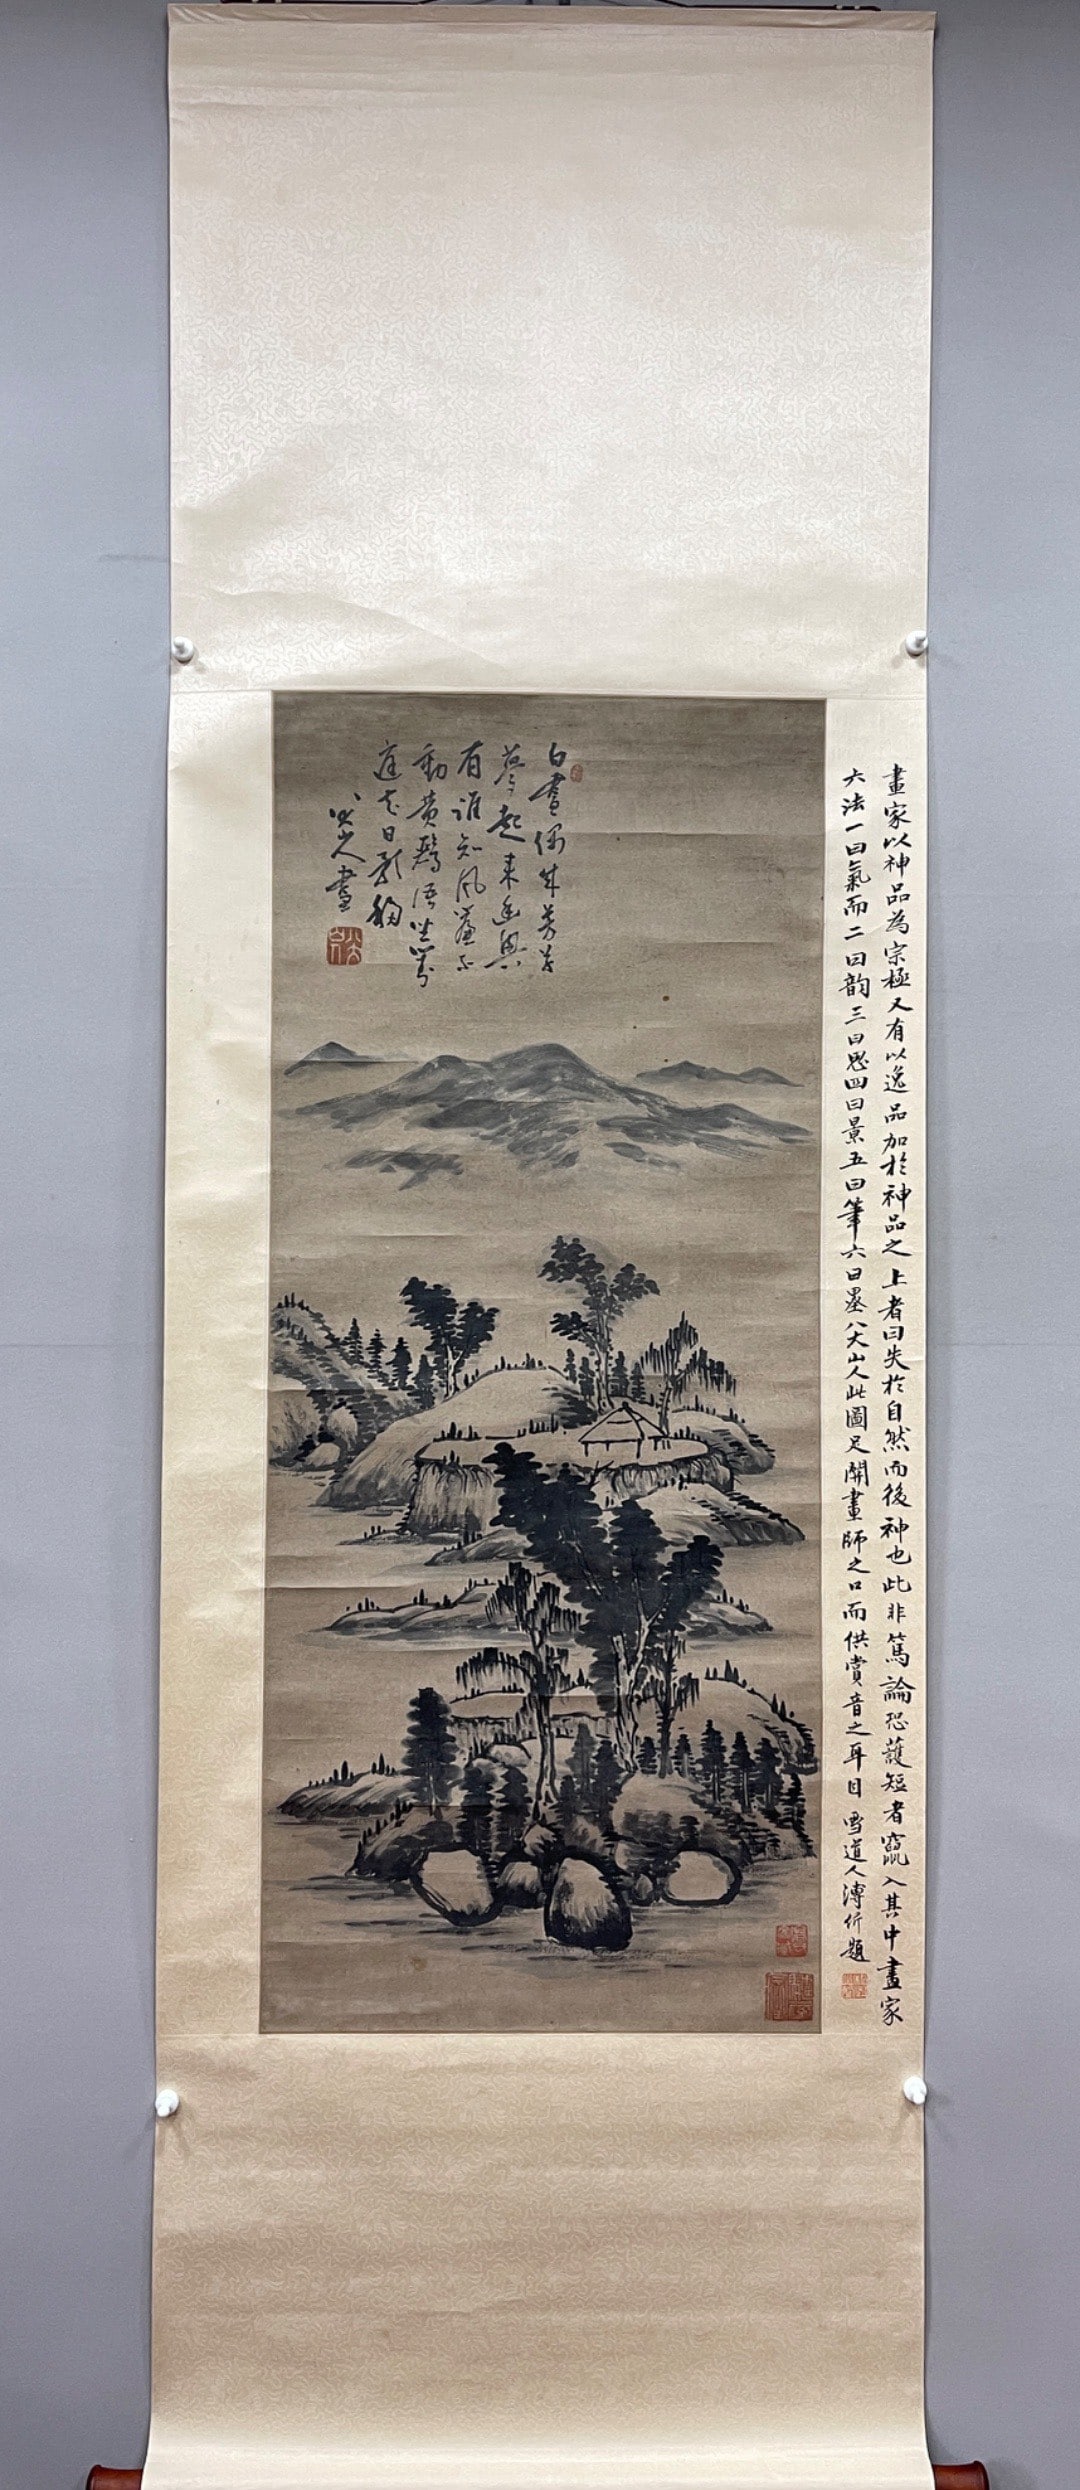 畫家以神品為宗極又有以逸品加於神品之上者曰失於自然而後神也此非篤論恐護短者竄入其中畫家
六法一曰氣而二曰韵三曰思四曰景五曰筆六曰墨八大山人此圖足開畫師之口而供賞音之耳目 雪道人溥伒題
白晝偶成芳草
夢起來幽興
有誰知風簾不
動黄鸝語坐對
庭花日影移
八大山人畫